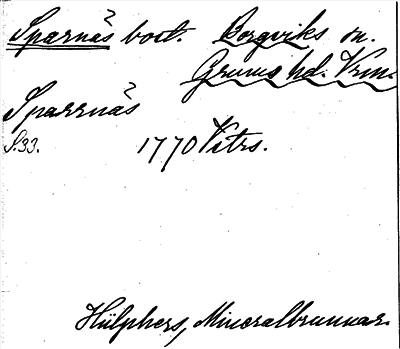 Sparnäs bost. Borgviks sn.
Grums hd. Vrm.
Sparrnäs
S. 33. 1770 Vitrs.
Hülphers, Mineralbrunnar.